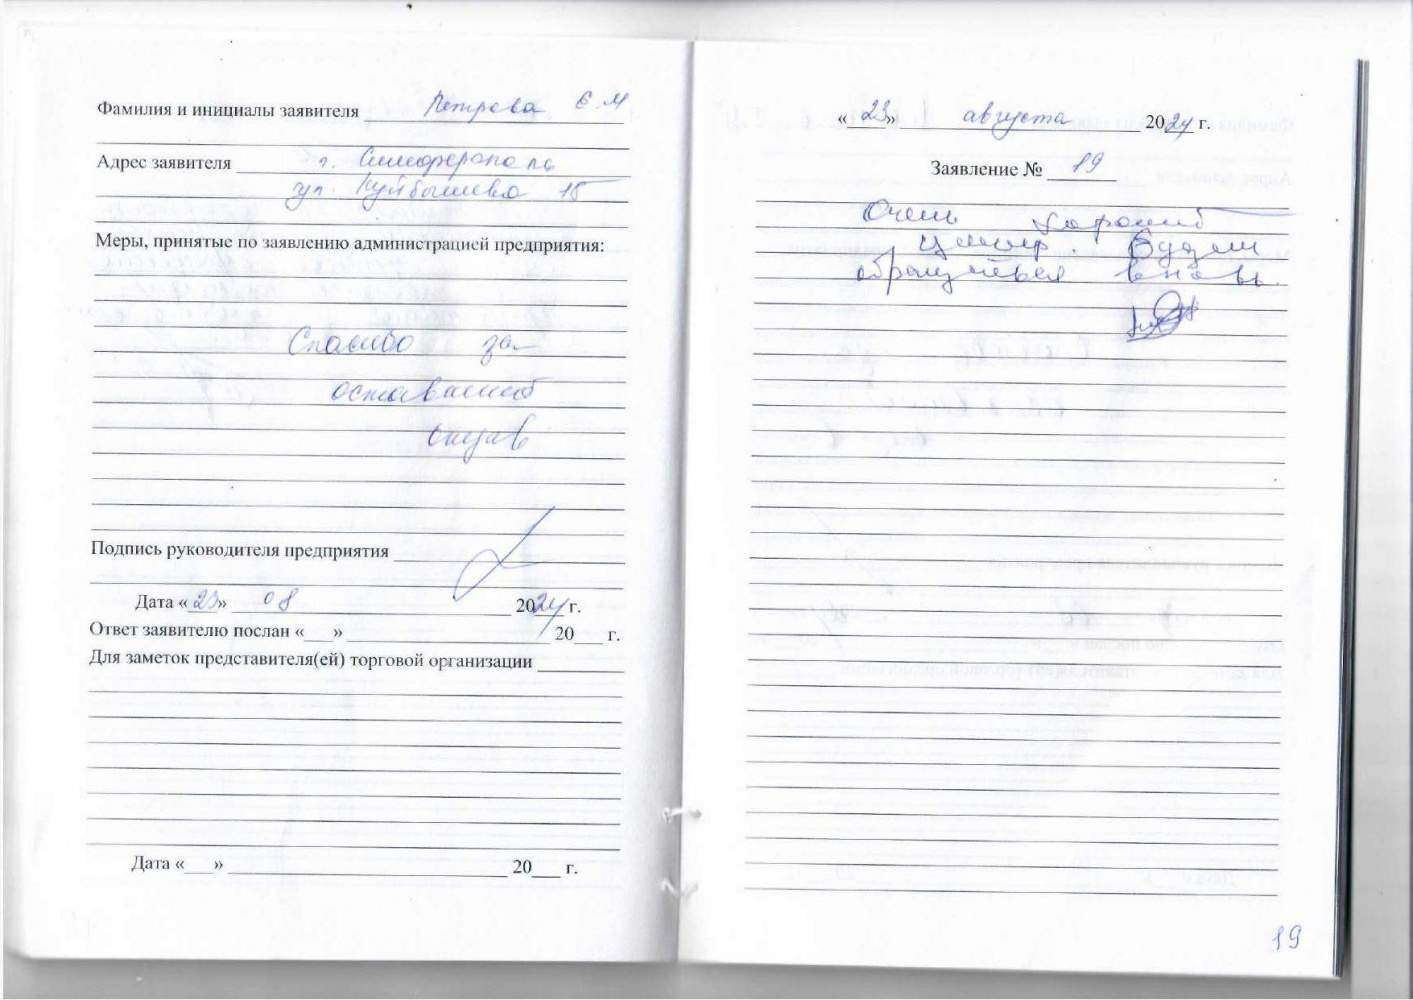 Фамилия и инициалы заявителя Петрова Е.М
Адрес заявителя г. Симферополь
ул. Куйбышева 15
Меры, принятые по заявлению администрацией предприятия:
Спасибо за
оставленный
отзыв
Подпись руководителя предприятия
Дата «23» 08 2024 г.
Ответ заявителю послан «___» 20___ г.
Для заметок представителя(ей) торговой организации
Дата «___» 20___ г.
«23» августа 2024 г.
Заявление № 19
Очень хороший
центр. Будем
обращаться вновь.
19